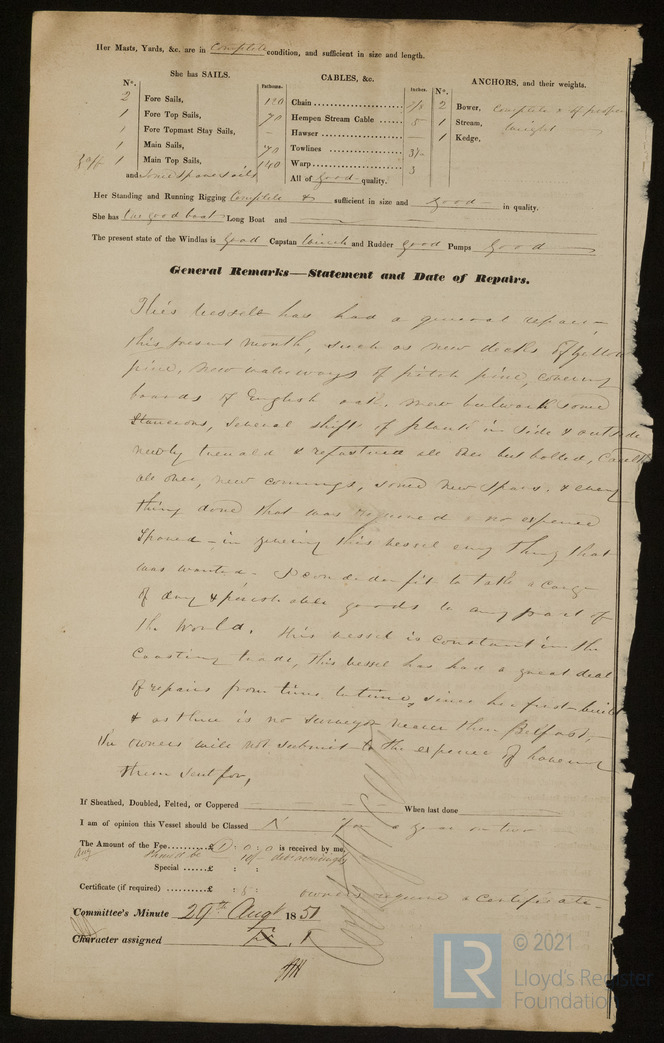 Her Masts, Yards, &c. are in Complete condition, and sufficient in size and length.
She has SAILS.
CABLES, &c.
ANCHORS, and their weights.
N°.
Fathoms.
Inches.
N°.
2 Fore Sails, 120 Chain 7/8 2 Bower, Complete & of proper
1 Fore Top Sails, 70 Hempen Stream Cable 5 1 Stream, weight
1 Fore Topmast Stay Sails, – Hawser – 1 Kedge,
1 Main Sails, 70 Towlines 3½
Gaff 1 Main Top Sails, 140 Warp 3
and some spare sails All of good quality.
Her Standing and Running Rigging Complete & sufficient in size and good in quality.
She has one good boat Long Boat and
The present state of the Windlas is Good Capstan Winch and Rudder Good Pumps Good
General Remarks—Statement and Date of Repairs.
This vessel has had a general repair
this present month, such as new decks of yellow
pine, New waterways of pitch pine, covering
boards of English oak, new bulwark some
Stancions, several shifts of plank in side & outside
newly trenald & refastened all over but bolted, Caulk
all over, new comings, some new spars, & every
thing done that was required & no expense
Spared in giving this vessel every thing that
was wanted. I consider fit to take a cargo
of dry & perishable goods to any part of
the World. This vessel is constant in the
Coasting trade, this vessel has had a great deal
of repairs from time to time, since her first built
& as there is no surveyor nearer then Belfast,
the owners will not submit to the expense of haveing
them sent for,
If Sheathed, Doubled, Felted, or Coppered When last done
I am of opinion this Vessel should be Classed for a year or two
The Amount of the Fee £ 1 : 0 : 0 is received by me,
should be
Special £ : :
Certificate (if required) £ : 5 :
owners require a Certificate
Committee's Minute 29th Augt 1851
Character assigned
© 2021
LR
Lloyd's Register
Foundation